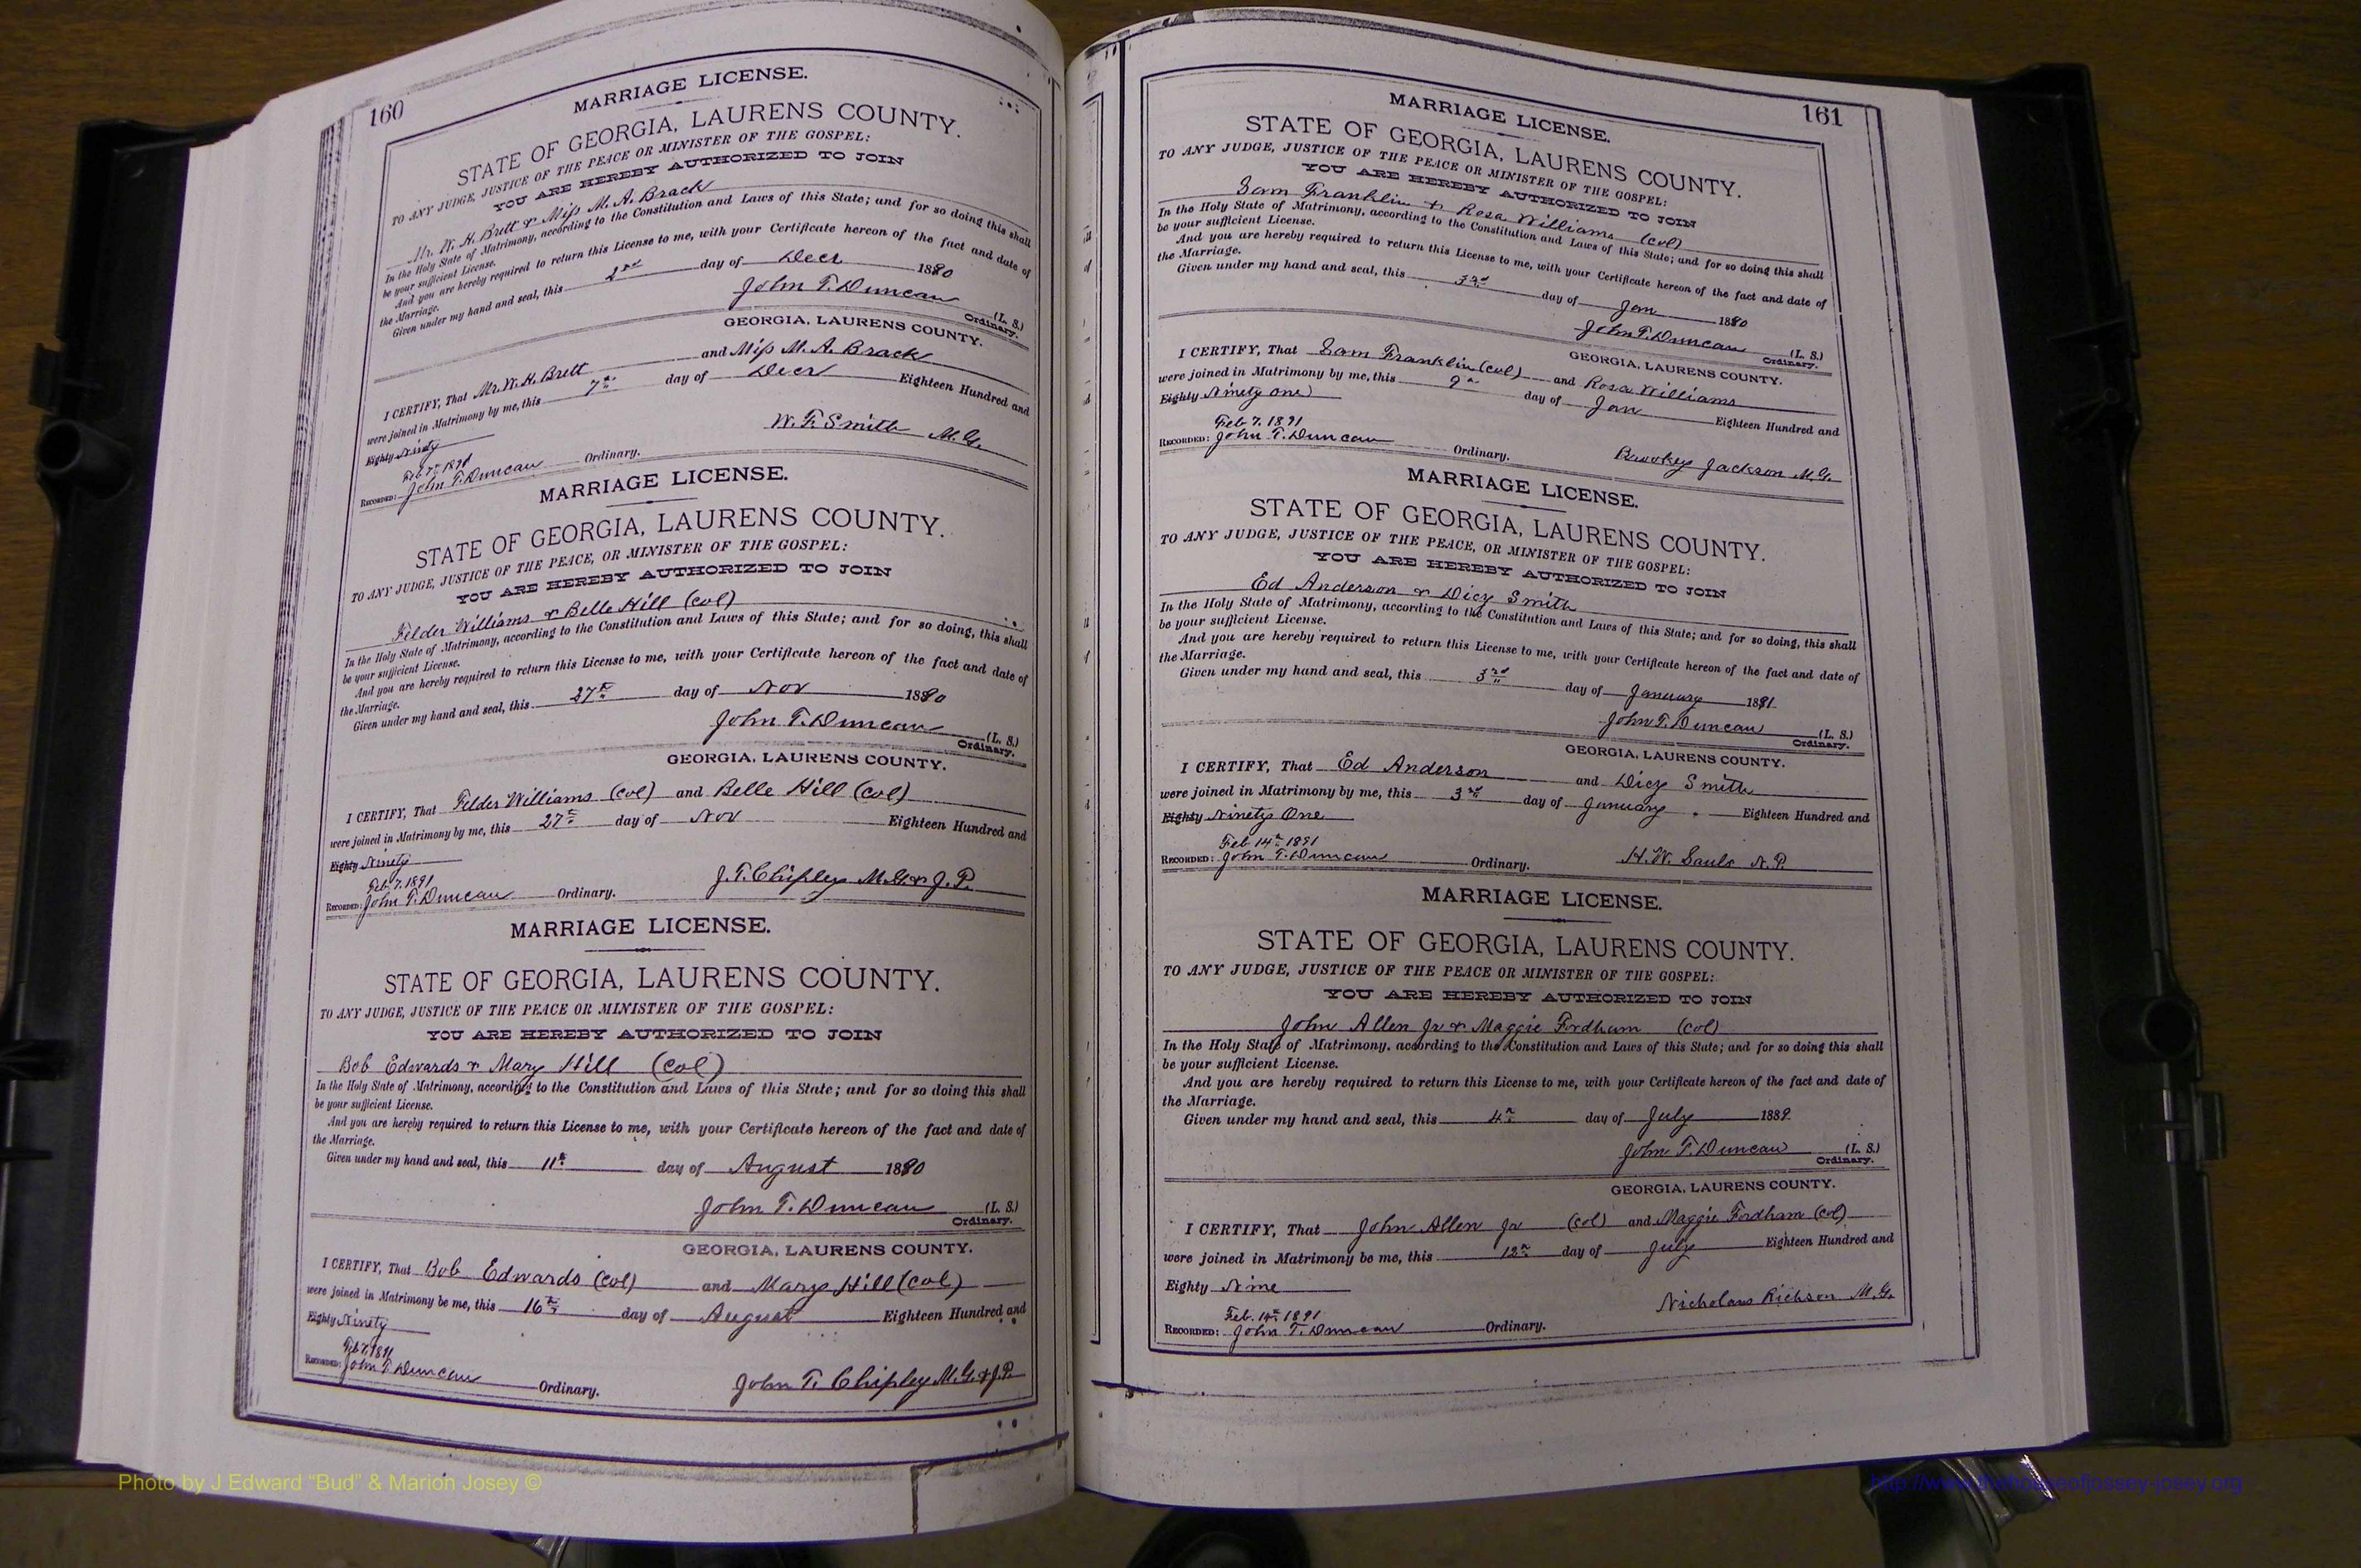 160
MARRIAGE LICENSE.
STATE OF GEORGIA, LAURENS COUNTY.
TO ANY JUDGE, JUSTICE OF THE PEACE OR MINISTER OF THE GOSPEL:
YOU ARE HEREBY AUTHORIZED TO JOIN
Mr. W. H. Brett & Miss M. A. Brack
In the Holy State of Matrimony, according to the Constitution and Laws of this State; and for so doing this shall
be your sufficient License.
And you are hereby required to return this License to me, with your Certificate hereon of the fact and date of
the Marriage.
Given under my hand and seal, this 2nd day of Decr 1890
John T. Duncan (L. S.)
Ordinary.
GEORGIA, LAURENS COUNTY.
I CERTIFY, That Mr. W. H. Brett and Miss M. A. Brack
were joined in Matrimony by me, this 7th day of Decr Eighteen Hundred and
Eighty Ninety
W. F. Smith M. G.
Feb 7th 1891
RECORDED: John T. Duncan Ordinary.
MARRIAGE LICENSE.
STATE OF GEORGIA, LAURENS COUNTY.
TO ANY JUDGE, JUSTICE OF THE PEACE, OR MINISTER OF THE GOSPEL:
YOU ARE HEREBY AUTHORIZED TO JOIN
Felder Williams & Belle Hill (Col)
In the Holy State of Matrimony, according to the Constitution and Laws of this State; and for so doing, this shall
be your sufficient License.
And you are hereby required to return this License to me, with your Certificate hereon of the fact and date of
the Marriage.
Given under my hand and seal, this 27th day of Nov 1890
John T. Duncan (L. S.)
Ordinary.
GEORGIA, LAURENS COUNTY.
I CERTIFY, That Felder Williams (Col) and Belle Hill (Col)
were joined in Matrimony by me, this 27th day of Nov Eighteen Hundred and
Eighty Ninety
J. T. Chipley M.G. & J. P.
Feb. 7. 1891
RECORDED: John T. Duncan Ordinary.
MARRIAGE LICENSE.
STATE OF GEORGIA, LAURENS COUNTY.
TO ANY JUDGE, JUSTICE OF THE PEACE OR MINISTER OF THE GOSPEL:
YOU ARE HEREBY AUTHORIZED TO JOIN
Bob Edwards & Mary Hill (Col)
In the Holy State of Matrimony, according to the Constitution and Laws of this State; and for so doing this shall
be your sufficient License.
And you are hereby required to return this License to me, with your Certificate hereon of the fact and date of
the Marriage.
Given under my hand and seal, this 11th day of August 1890
John T. Duncan (L. S.)
Ordinary.
GEORGIA, LAURENS COUNTY.
I CERTIFY, That Bob Edwards (Col) and Mary Hill (Col)
were joined in Matrimony be me, this 16th day of August Eighteen Hundred and
Eighty Ninety
Feb 7. 1891
RECORDED: John T. Duncan Ordinary.
John T. Chipley M.G. & J.P.
161
MARRIAGE LICENSE.
STATE OF GEORGIA, LAURENS COUNTY.
TO ANY JUDGE, JUSTICE OF THE PEACE OR MINISTER OF THE GOSPEL:
YOU ARE HEREBY AUTHORIZED TO JOIN
Sam Franklin & Rosa Williams (Col)
In the Holy State of Matrimony, according to the Constitution and Laws of this State; and for so doing this shall
be your sufficient License.
And you are hereby required to return this License to me, with your Certificate hereon of the fact and date of
the Marriage.
Given under my hand and seal, this 3rd day of Jan 1890
John T. Duncan (L. S.)
Ordinary.
GEORGIA, LAURENS COUNTY.
I CERTIFY, That Sam Franklin (Col) and Rosa Williams
were joined in Matrimony by me, this 9th day of Jan Eighteen Hundred and
Eighty Ninety one
Feb 7. 1891
RECORDED: John T. Duncan Ordinary.
Jackson M.G.
MARRIAGE LICENSE.
STATE OF GEORGIA, LAURENS COUNTY.
TO ANY JUDGE, JUSTICE OF THE PEACE, OR MINISTER OF THE GOSPEL:
YOU ARE HEREBY AUTHORIZED TO JOIN
Ed Anderson & Dicy Smith
In the Holy State of Matrimony, according to the Constitution and Laws of this State; and for so doing, this shall
be your sufficient License.
And you are hereby required to return this License to me, with your Certificate hereon of the fact and date of
the Marriage.
Given under my hand and seal, this 3rd day of January 1891
John T. Duncan (L. S.)
Ordinary.
GEORGIA, LAURENS COUNTY.
I CERTIFY, That Ed Anderson and Dicy Smith
were joined in Matrimony by me, this 3rd day of January Eighteen Hundred and
Eighty Ninety One
Feb 14th 1891
RECORDED: John T. Duncan Ordinary.
H. W. Sauls N. P.
MARRIAGE LICENSE.
STATE OF GEORGIA, LAURENS COUNTY.
TO ANY JUDGE, JUSTICE OF THE PEACE OR MINISTER OF THE GOSPEL:
YOU ARE HEREBY AUTHORIZED TO JOIN
John Allen Jr & Maggie Fordham (Col)
In the Holy State of Matrimony, according to the Constitution and Laws of this State; and for so doing this shall
be your sufficient License.
And you are hereby required to return this License to me, with your Certificate hereon of the fact and date of
the Marriage.
Given under my hand and seal, this 4th day of July 1889
John T. Duncan (L. S.)
Ordinary.
GEORGIA, LAURENS COUNTY.
I CERTIFY, That John Allen Jr (Col) and Maggie Fordham (Col)
were joined in Matrimony be me, this 12th day of July Eighteen Hundred and
Eighty Nine
Nicholas Richson M.G.
Feb. 14th 1891
RECORDED: John T. Duncan Ordinary.
Photo by J Edward “Bud” & Marion Josey ©
http://www.thehouseofjossey-josey.org